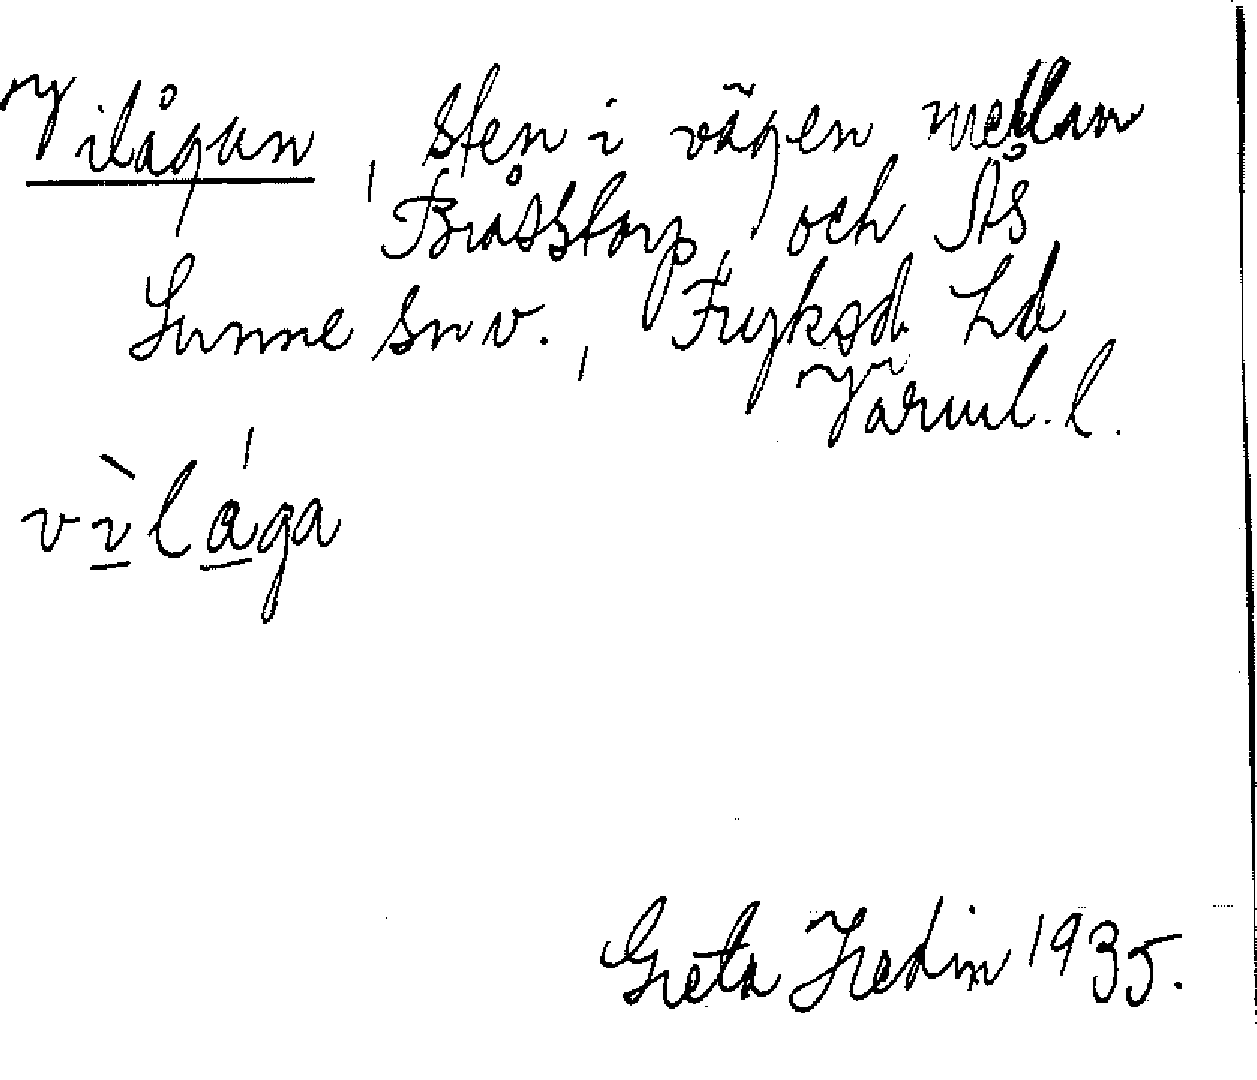 Vilågan, sten i vägen mellan
Bråstorp och Ås
Sunne sn v., Fryksd. hd
Värml. l.
vìlága
Greta Hedin 1935.